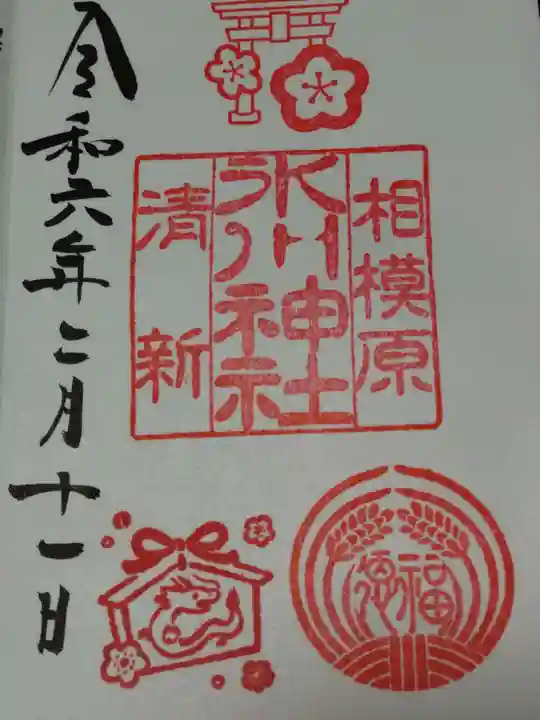 相模原
氷川神社
清新
福
令和六年二月十一日